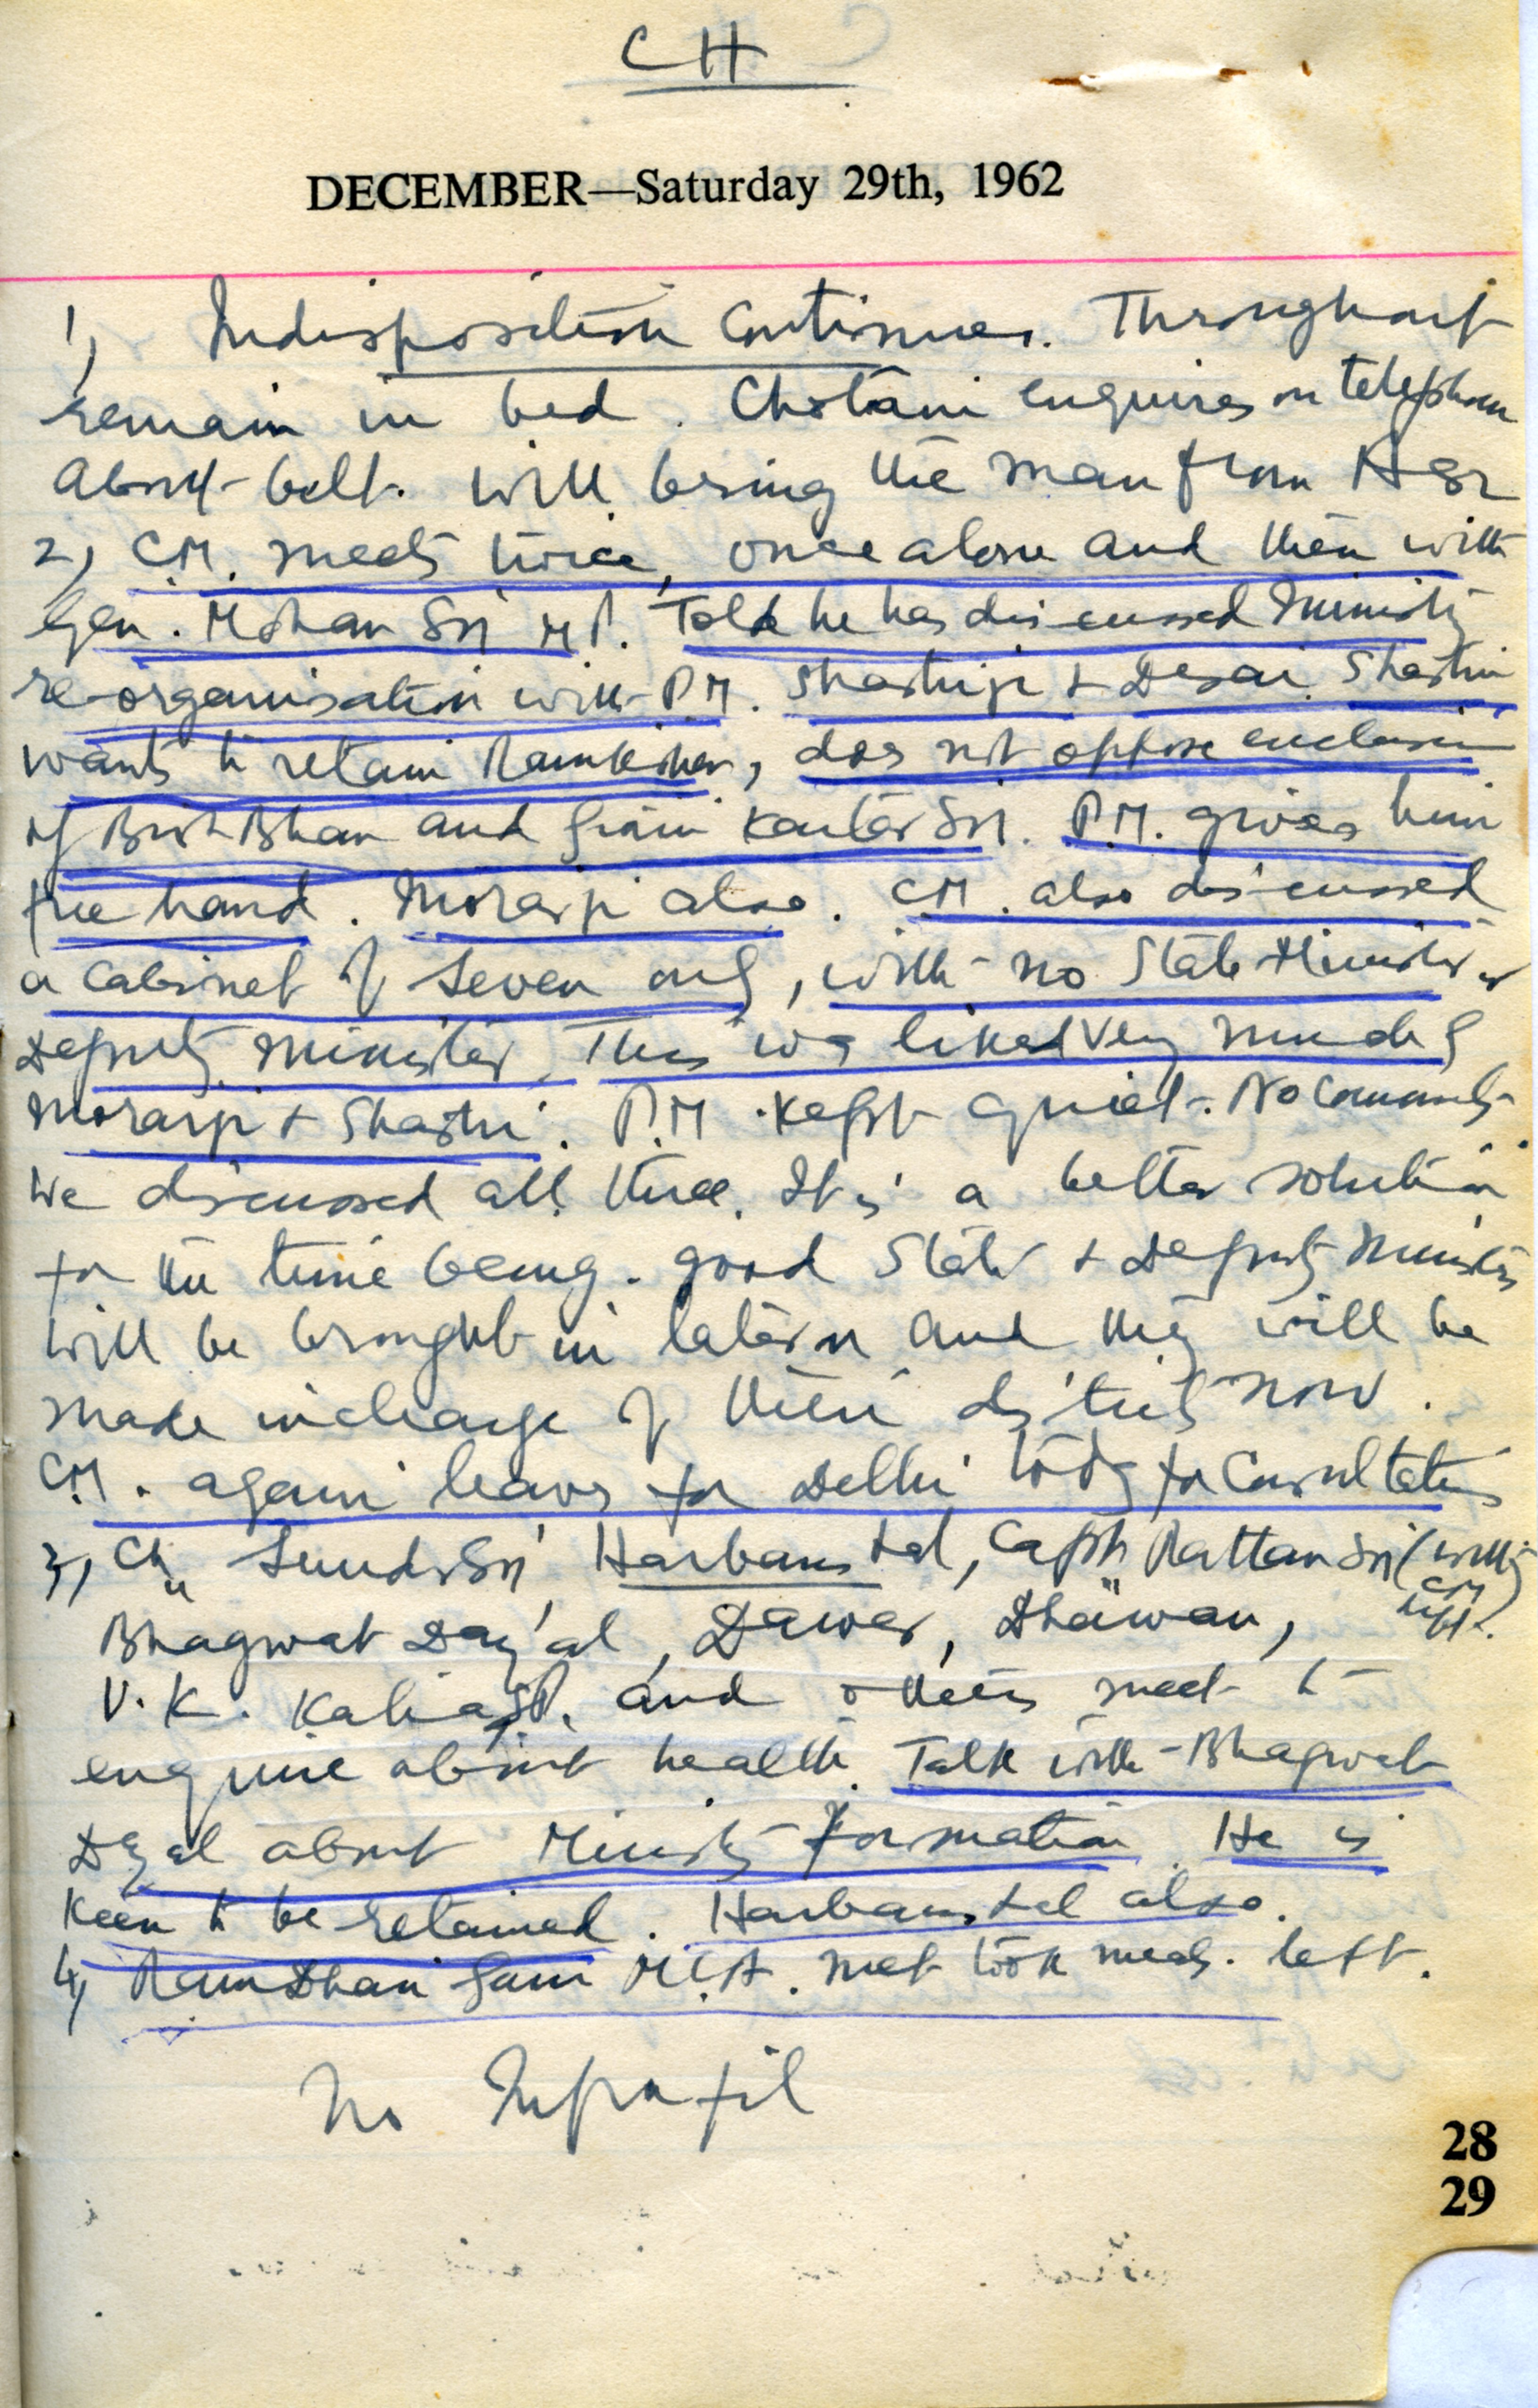 CH
DECEMBER—Saturday 29th, 1962
1) Indisposition Continues. Throughout
remain in bed. Chotani enquires on telephone
about belt. Will bring the man from
2) C.M. meets twice, once alone and then with
Gen. Mohan Sn M.P. Told he has discussed Ministry
re-organisation with P.M. Shastriji + Desai. Shastri
wants to retain Ramkishan, does not oppose inclusion
of Brish Bhan and Giani Kartar Sn. P.M. gives him
free hand. Morarji also. C.M. also discussed
a Cabinet of Seven only, with no State Minister or
Deputy Minister. This was liked very much by
Morarji + Shastri. P.M. kept quiet. No Comments
We discussed all three. It is a better solution
for the time being. good State + Deputy Ministers
will be brought in later on and they will be
made incharge of their districts now.
C.M. again leaves for Delhi today for Consultations
3) Ch. Sunder Sn, Harbans Lal, Capt Rattan Sn (with CM left.)
Bhagwat Dayal, Dawer, Dhawan,
V.K. Kalia S.P. and others meet to
enquire about health. Talk with Bhagwat
Dayal about Ministry formation. He is
keen to be retained. Harbans Lal also.
4) Ram Dhari Gaur M.L.A. met took meals. left.
No